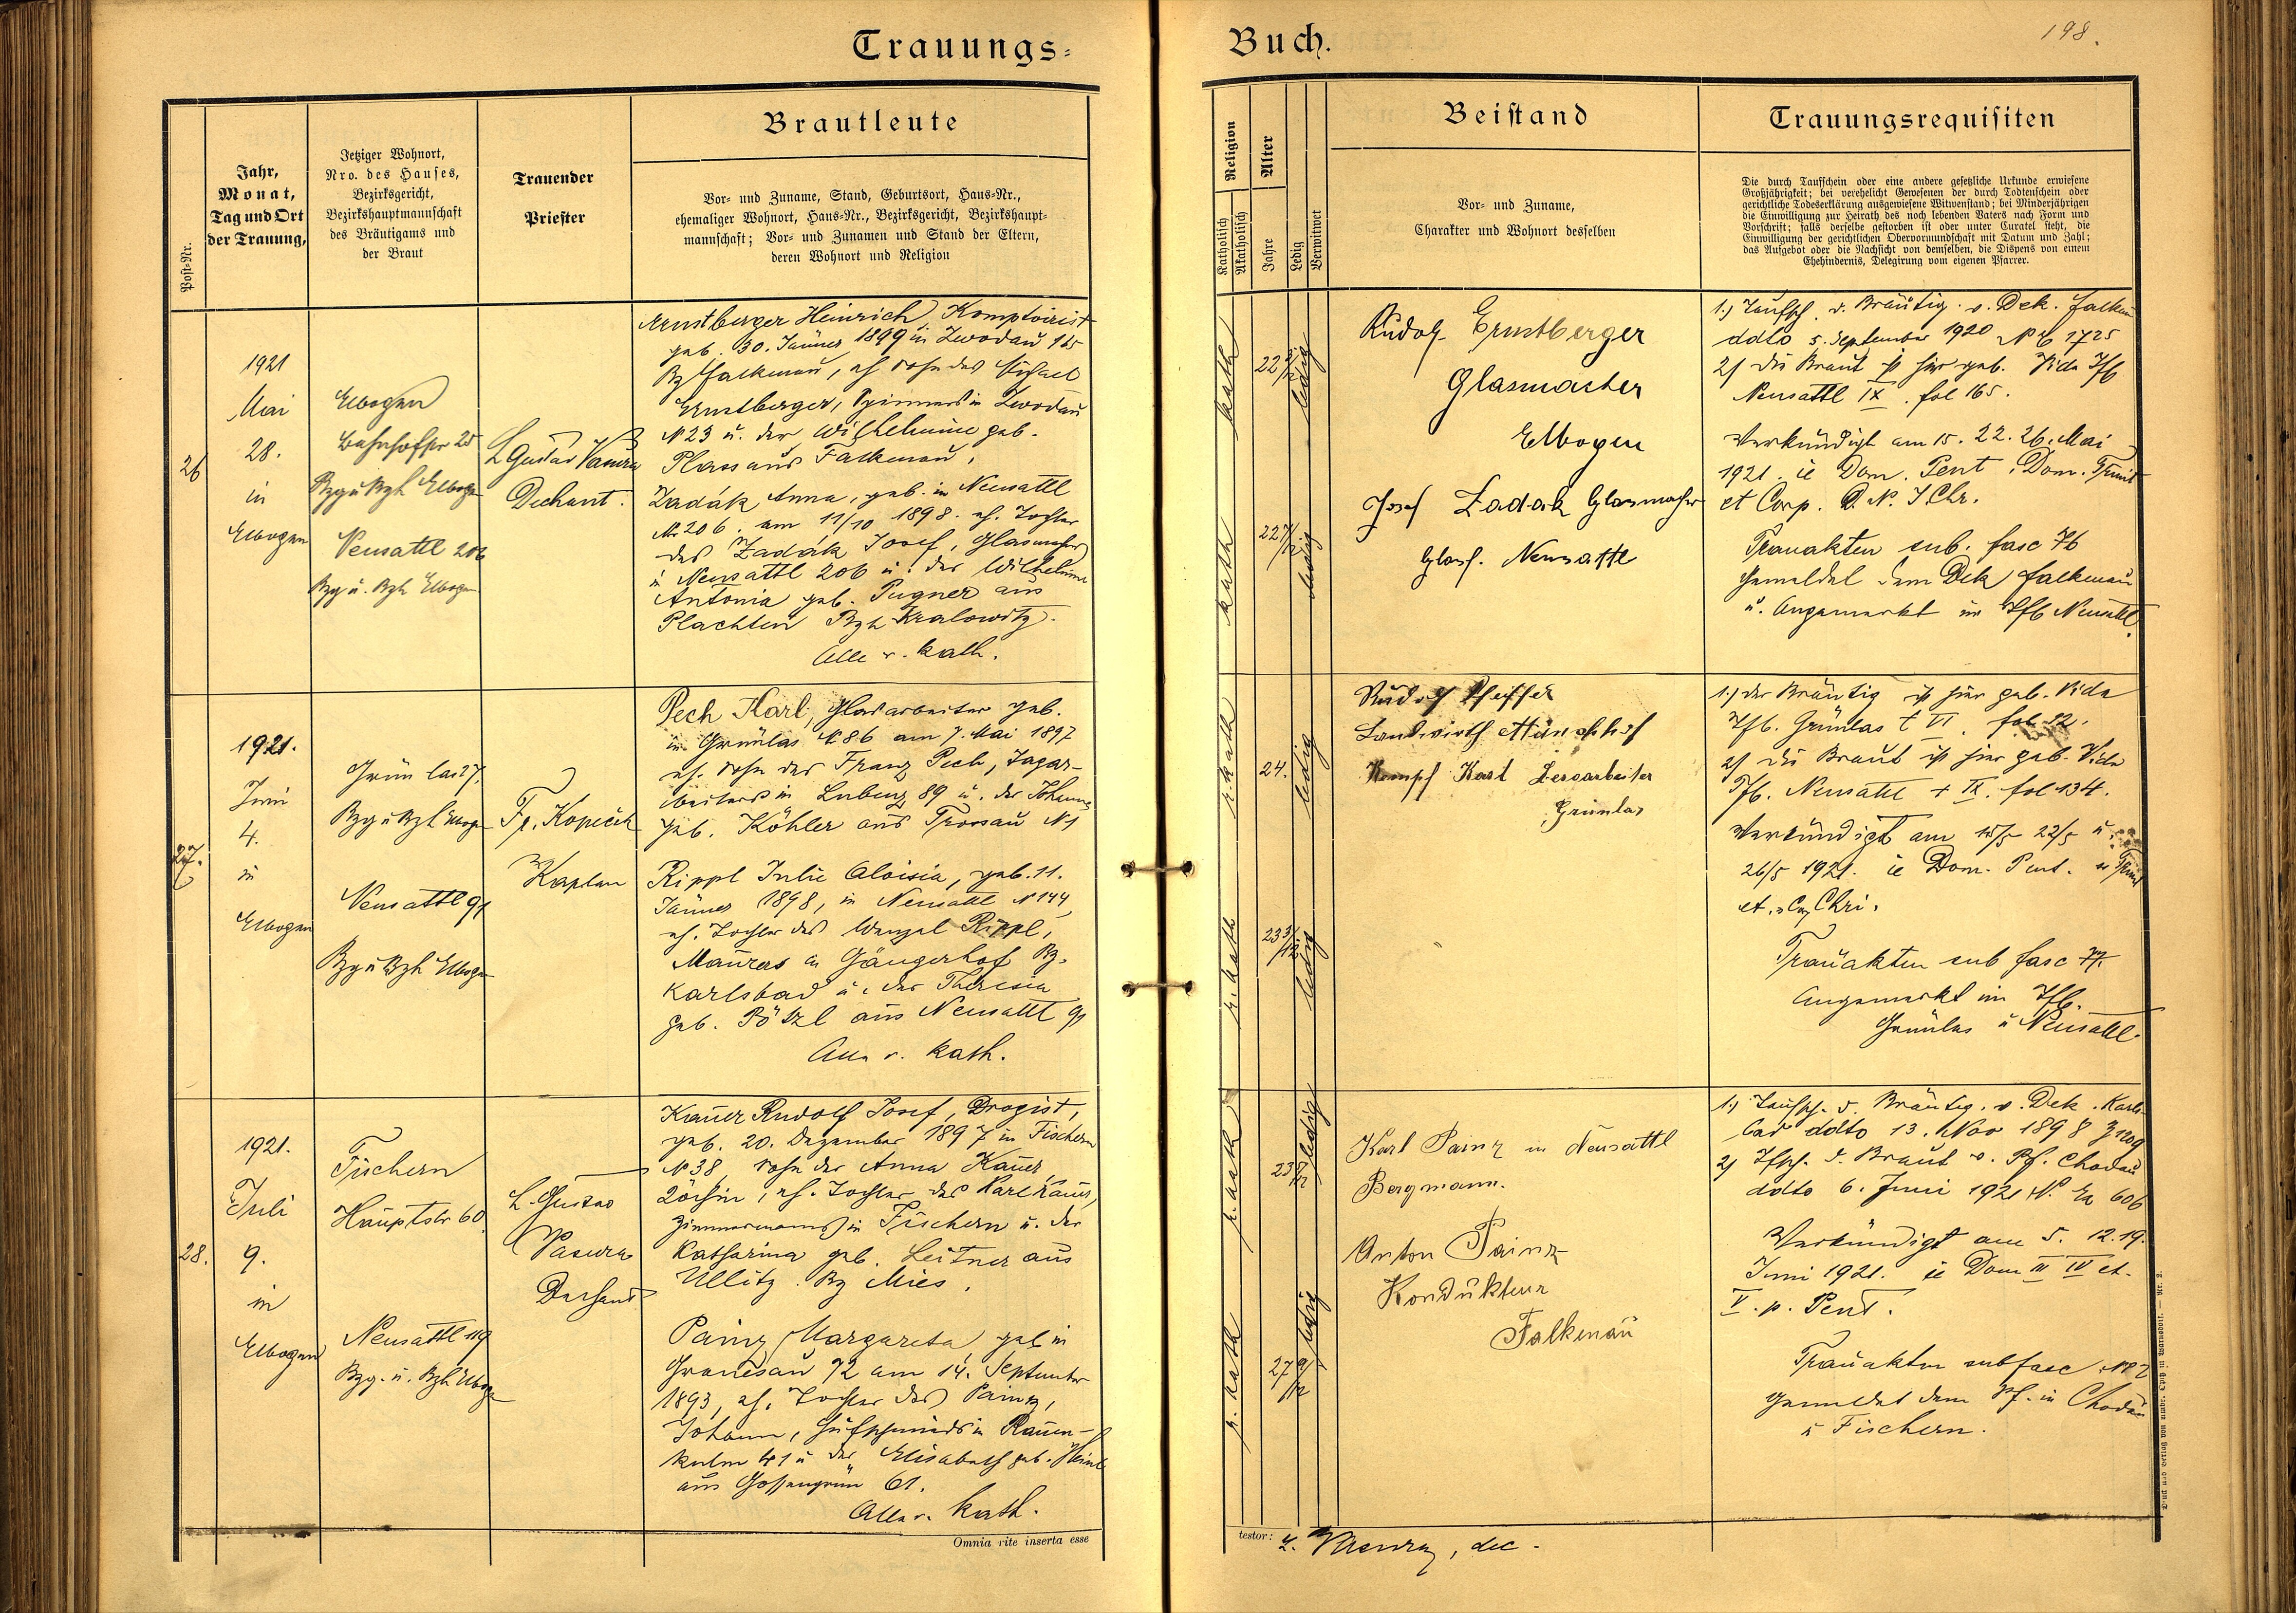 Trauungs-
Buch.
198.
Post-Nr.
Jahr,
Monat,
Tag und Ort
der Trauung,
Jetziger Wohnort,
Nro. des Hauses,
Bezirksgericht,
Bezirkshauptmannschaft
des Bräutigams und
der Braut
Trauender
Priester
Brautleute
Vor- und Zuname, Stand, Geburtsort, Haus-Nr.,
ehemaliger Wohnort, Haus-Nr., Bezirksgericht, Bezirkshaupt-
mannschaft; Vor- und Zunamen und Stand der Eltern,
deren Wohnort und Religion
Religion
Katholisch
Akatholisch
Alter
Jahre
Ledig
Verwitwet
Beistand
Vor- und Zuname,
Charakter und Wohnort desselben
Trauungsrequisiten
Die durch Taufschein oder eine andere gesetzliche Urkunde erwiesene
Großjährigkeit; bei verehelicht Gewesenen der durch Todtenschein oder
gerichtliche Todeserklärung ausgewiesene Witwenstand; bei Minderjährigen
die Einwilligung zur Heirath des noch lebenden Vaters nach Form und
Vorschrift; falls derselbe gestorben ist oder unter Curatel steht, die
Einwilligung der gerichtlichen Obervormundschaft mit Datum und Zahl;
das Aufgebot oder die Nachsicht von demselben, die Dispens von einem
Ehehindernis, Delegirung vom eigenen Pfarrer.
26
1921
Mai
28.
in
Elbogen
Elbogen
Bahnhofstr 25
Bzg u Bzh Elbogen
Neusattl 206
Bzg u. Bzh Elbogen
L Gustav
Dechant.
Ernstberger Heinrich, Komptoirist
geb. 30. Jänner 1899 in Zwodau 165
Bz Falkenau, eh Sohn des Michael
Ernstberger, Spinners in Zwodau
N 23 u. der Wilhelmine geb.
Plass aus Falkenau,
Zadák Anna, geb. in Neusattl
Nr 206. am 11/10 1898. eh. Tochter
des Zadák Josef, Glasmacher
in Neusattl 206 u. der Wilhelmine
Antonia geb. Pugner aus
Plachten Bzh Kralowitz.
Alle r. kath.
kath
kath
22
ledig
22
ledig
Rudolf Ernstberger
Glasmacher
Elbogen
Josef Zadak Glasmacher
Neusattl
1.) Taufsch. d. Bräutig. v. Dek. Falkenau
ddto 5. September 1920 N E 1725
2) die Braut ist hier geb. Vide Tfb
Neusattl IX. fol 165.
Verkündigt am 15. 22. 26. Mai
1921. ie Dom. Pent. Dom. Trinit
et Corp. D. N. J Chr.
Trauakten sub. fasc 76
Gemeldet dem Dek Falkenau
u. Angemerkt im Tfb Neusattl.
27.
1921.
Juni
4.
in
Elbogen
Grünlas 27.
Bzg u Bzh Elbogen
Neusattl 91
Bzg u Bzh Elbogen
Fr. Kopeček
Kaplan
Pech Karl, Glasarbeiter geb.
in Grünlas N 86 am 7. Mai 1897
eh. Sohn des Franz Pech, Tagar-
beiters in Lubenz 89 u. der Johanna
geb. Köhler aus Trossau N 1
Rippl Julie Aloisia, geb. 11.
Jänner 1898, in Neusattl N 144,
eh. Tochter des Wenzel Rippl,
Maurers in Gängerhof Bz.
Karlsbad u. der Theresia
geb. Pötzl aus Neusattl 91
Alle r. kath.
r. kath
r. kath
24.
ledig
23 3/12
ledig
Rudolf Pfeiffer
Landwirth Münchhof
Kempf Karl
Grünlas
1.) der Bräutig ist hier geb. Vide
Tfb. Grünlas t VI. fol 12.
2) die Braut ist hier geb. Vide
Tfb. Neusattl t IX. fol 134.
Verkündigt am 15/5 22/5 u.
26/5 1921. ie Dom. Pent. u Trinit
et. Chri.
Trauakten sub fasc 77.
Angemerkt im Tfb.
Grünlas u Neusattl.
28.
1921.
Juli
9.
in
Elbogen
Fischern
Hauptstr 60
Neusattl 119
Bzg. u. Bzh Elbogen
L. Gustav
Dechant
Kauer Rudolf Josef, Drogist,
geb. 20. Dezember 1897 in Fischern
N 38, Sohn der Anna Kauer,
Köchin, eh. Tochter des Karl Kauer,
Zimmermanns in Fischern u. der
Katharina geb. Leitner aus
Ullitz. Bz Mies.
Painz Margareta, geb in
Granesau 92 am 14. September
1893, eh. Tochter des Painz,
Johann, Hufschmieds in Rauen-
kulm 41 u der Elisabeth geb.
aus Gossengrün 61.
Alle r. kath.
r. kath
r. kath
23
ledig
27 9/12
ledig
Karl Painz in Neusattl
Bergmann.
Anton Painz
Kondukteur
Falkenau
1.) Taufsch. d. Bräutig. v. Dek. Karls-
bad ddto 13. Nov 1898
2) Tfsch. d. Braut v. Pf. Chodau
ddto 6. Juni 1921 N. Ex 606
Verkündigt am 5. 12. 19.
Juni 1921. ie Dom III IV et.
V. p. Pent.
Trauakten sub fasc
gemeldet dem Pf. in Chodau
u Fischern.
Omnia rite inserta esse
testor:
, dec.